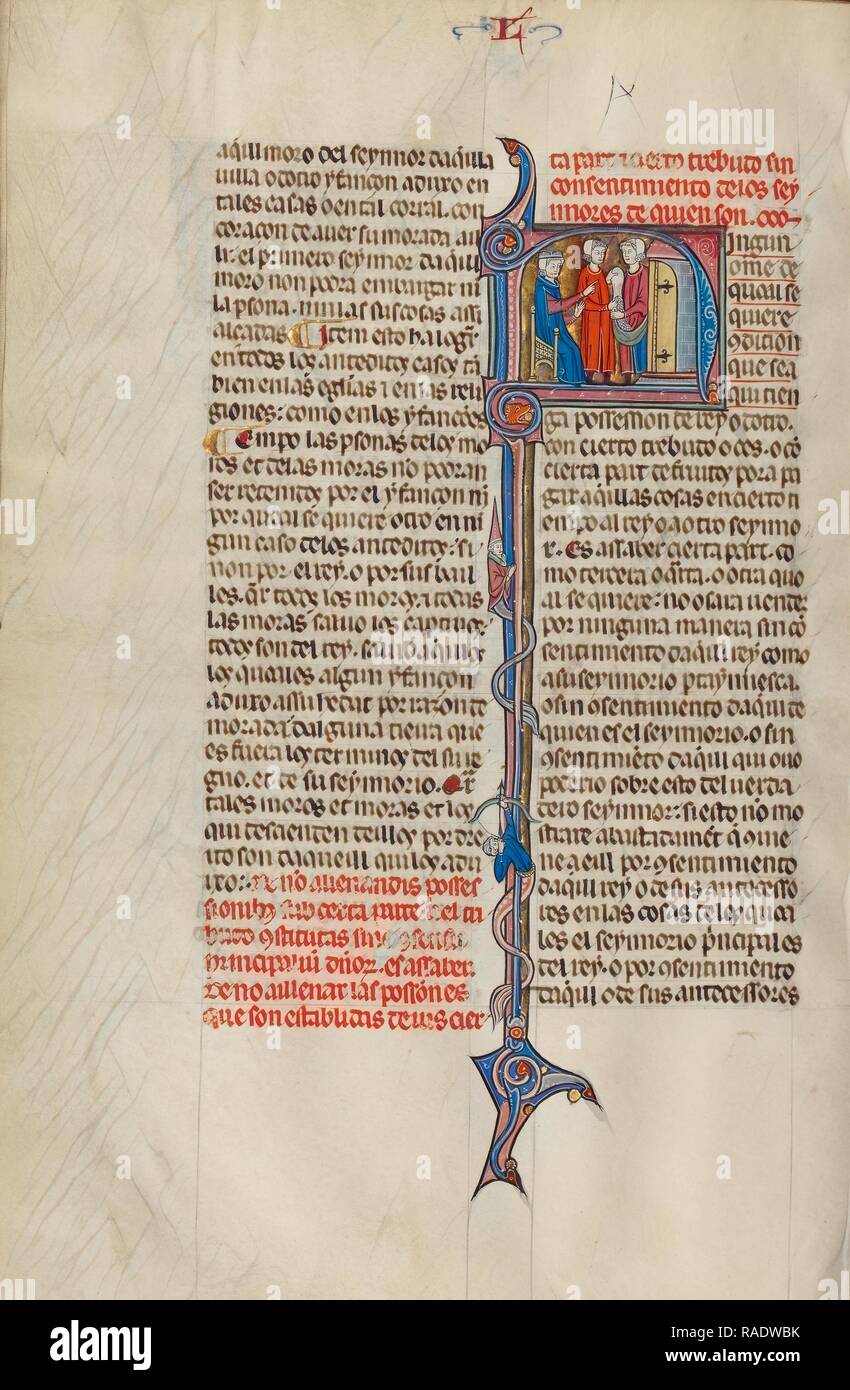 L
aquil moro del seynnor daquilla
uilla o dotro yfançon aduxo en
tales casas o en tal corral. con
coraçon de auer su morada
li: el primero seynnor daquil
moro non podra embargar ni
la psona. nin las sus cosas assi
alçadas Item esto ha logar
en todos los anteditos casos tā
bien en las eglias τ en las reli
giones: como en los yfançoēs
Empo las psonas delos mo
ros et delas moras nō podran
ser retenidos por el yfançon ni
por qual se quiere otro en ni
gun caso delos anteditos: si
non por el rey. o por sus bail
les. qr todos los moros τ todas
las moras saluo los captiuos.
todos son del rey. saluo aquilos
los quales algun yfançon
aduxo assu hedat por razon de
morada dalguna tierra que
es fuera los terminos del su re
gno. et de su seynnorio. Qr
tales moros et moras et los
qui descienden deillos por dre
ito son daqueill qui los adu
xo: De nō alienandis posses
sionibus sub certa parte uel tri
buto ɔstitutas sine ɔsensu
principaliū dnorz. es assaber.
De no allenar las possiōnes
que son establidas deius cier
ta part τ cierto trebuto sin
consentimiento delos sey
nnores de quien son.
Ningun
omne de
qual se
quiere
ɔdition
que sea
qui tien
ga possession de rey o dotro.
con cierto trebuto o ces. o cō
cierta part de fruitos pora pa
gar aquillas cosas en cierto ti
empo al rey o a otro seynno
r. Es assaber cierta part. co
mo tercera o qrta. o otra quo
al se quiere: no osara uender
por ninguna manera sin cō
sentimiento daquil rey como
a su seynnorio ptaynnesca.
o sin ɔsentimiento daquil de
quien es el seynnorio. o sin
ɔsentimiēto daquil qui ouo
poderio sobre esto del uerda
dero seynnor: si esto no mo
strare abastadamēt q̄ quie
ne a eill por ɔsentimiento
daquil rey o de sus antecesso
res en las cosas delos qua
les el seynnorio pncipal es
del rey. o por ɔsentimiento
daquil o de sus antecessores
alamy
Image ID: RADWBK
www.alamy.com